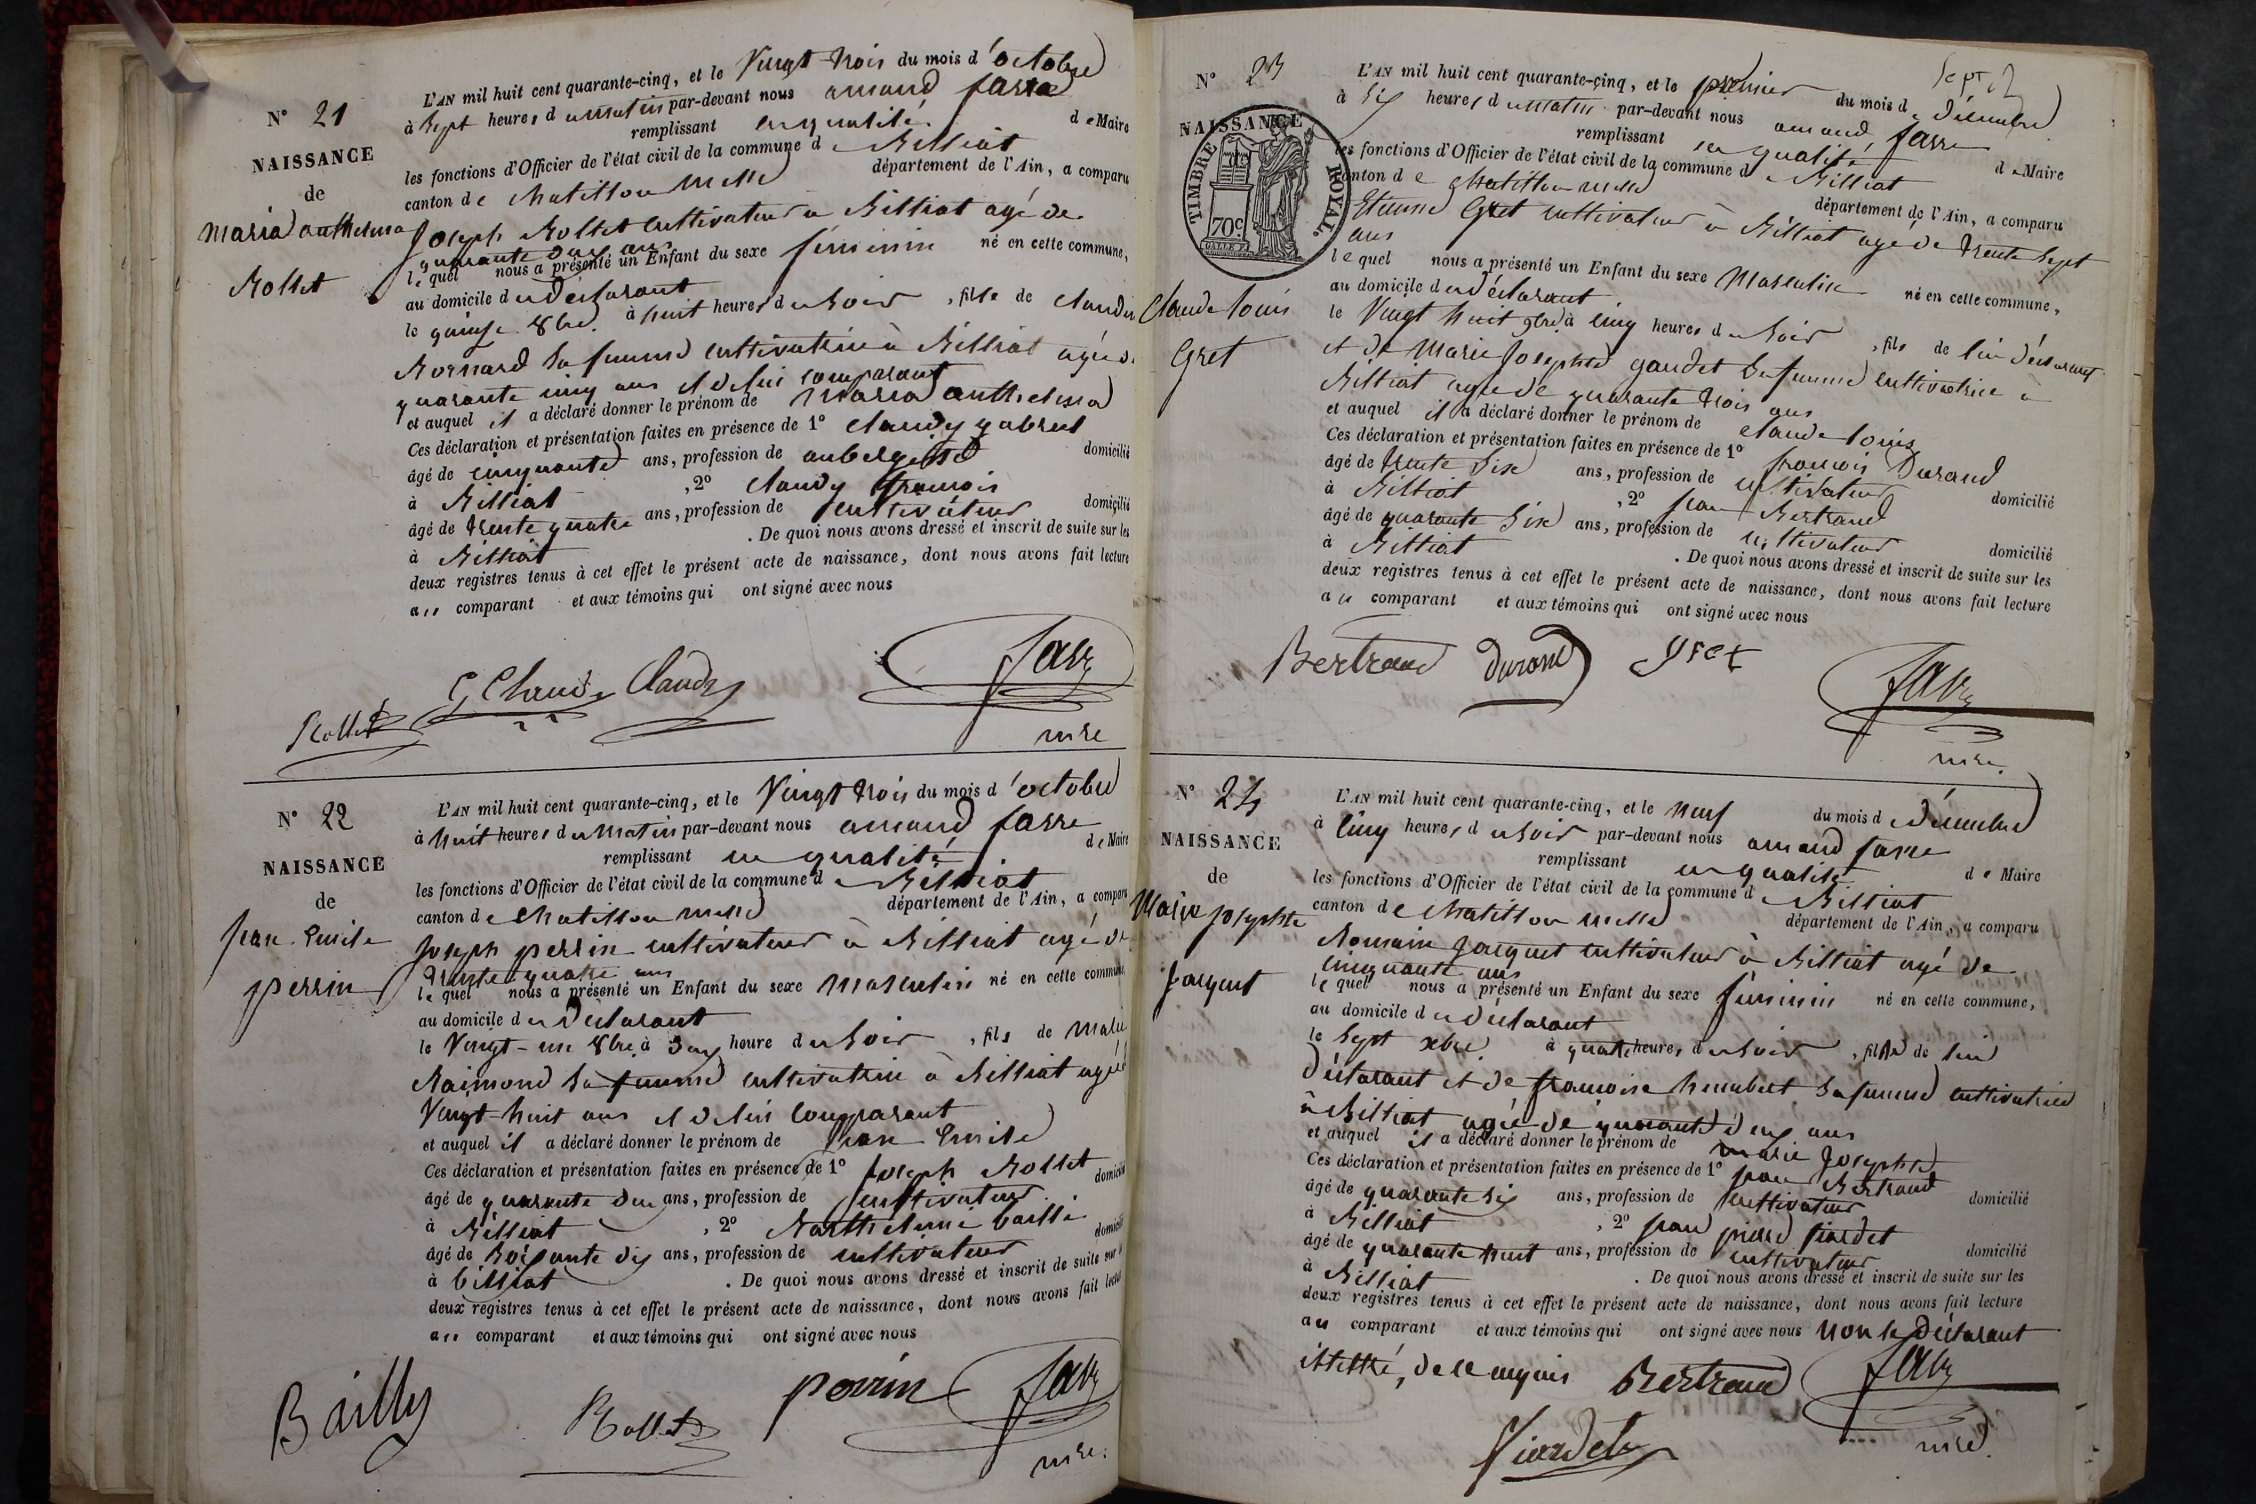 N° 21
NAISSANCE
de
Maria anthelma
Rollet
L'AN mil huit cent quarante-cinq, et le Vingt trois du mois d'octobre
à Sept heures du matin par-devant nous amand favre
remplissant en qualité de Maire
les fonctions d'Officier de l'état civil de la commune de Billiat
canton de Chatillon Mlle département de l'Ain, a comparu
Joseph Rollet cultivateur à Billiat agé de
quarante deux ans
lequel nous a présenté un Enfant du sexe féminin né en cette commune,
au domicile du déclarant
le quinze 8bre à huit heures du Soir, fille de Claudine
Bornard Sa femme cultivatrice à Billiat agée de
quarante cinq ans et de lui comparant
et auquel il a déclaré donner le prénom de Maria anthelma
Ces déclaration et présentation faites en présence de 1° Claudy gabriel
âgé de cinquante ans, profession de aubergiste domicilié
à Billiat, 2° Claudy françois
âgé de trente quatre ans, profession de cultivateur domicilié
à Billiat. De quoi nous avons dressé et inscrit de suite sur les
deux registres tenus à cet effet le présent acte de naissance, dont nous avons fait lecture
au comparant et aux témoins qui ont signé avec nous
Rollet G Claudy Claudy favre
mre
N° 22
NAISSANCE
de
Jean Emile
perrin
L'AN mil huit cent quarante-cinq, et le Vingt trois du mois d'octobre
à huit heures du Matin par-devant nous amand favre
remplissant en qualité de Maire
les fonctions d'Officier de l'état civil de la commune de Billiat
canton de Chatillon Mlle département de l'Ain, a comparu
Joseph perrin cultivateur à Billiat agé de
trente quatre ans
lequel nous a présenté un Enfant du sexe masculin né en cette commune,
au domicile du déclarant
le Vingt-un 8bre à une heure du Soir, fils de Marie
Raimond Sa femme cultivatrice à Billiat agée de
Vingt-huit ans et de lui comparant
et auquel il a déclaré donner le prénom de Jean Emile
Ces déclaration et présentation faites en présence de 1° Joseph Rollet
âgé de quarante deux ans, profession de cultivateur domicilié
à Billiat, 2° Barthelemi bailli
âgé de Soixante dix ans, profession de cultivateur domicilié
à billiat. De quoi nous avons dressé et inscrit de suite sur les
deux registres tenus à cet effet le présent acte de naissance, dont nous avons fait lecture
au comparant et aux témoins qui ont signé avec nous
Bailly Rollet perrin favre
mre.
Sept
N° 23
NAISSANCE
TIMBRE ROYAL.
70c.
Claude Louis
Gret
L'AN mil huit cent quarante-cinq, et le premier du mois de décembre
à Six heures du matin par-devant nous amand favre
remplissant en qualité de Maire
les fonctions d'Officier de l'état civil de la commune de Billiat
canton de Chatillon Mlle département de l'Ain, a comparu
Etienne Gret cultivateur à Billiat agé de trente Sept
ans
lequel nous a présenté un Enfant du sexe Masculin né en cette commune,
au domicile du déclarant
le Vingt huit 9bre à cinq heures du Soir, fils de lui déclarant
et de Marie Josephte gaudet Sa femme cultivatrice à
Billiat agée de quarante trois ans
et auquel il a déclaré donner le prénom de Claude louis
Ces déclaration et présentation faites en présence de 1° françois Durand
âgé de trente Six ans, profession de cultivateur domicilié
à Billiat, 2° jean Bertrand
âgé de quarante Six ans, profession de cultivateur domicilié
à Billiat. De quoi nous avons dressé et inscrit de suite sur les
deux registres tenus à cet effet le présent acte de naissance, dont nous avons fait lecture
au comparant et aux témoins qui ont signé avec nous
Bertrand Durand gret favre
mre.
N° 24
NAISSANCE
de
Marie Josephte
Jacquet
L'AN mil huit cent quarante-cinq, et le Neuf du mois de décembre
à Cinq heures du Soir par-devant nous amand favre
remplissant en qualité de Maire
les fonctions d'Officier de l'état civil de la commune de Billiat
canton de Chatillon Mlle département de l'Ain, a comparu
Romain Jacquet cultivateur à Billiat agé de
cinquante ans
lequel nous a présenté un Enfant du sexe féminin né en cette commune,
au domicile du déclarant
le Sept xbre à quatre heures du Soir, fille de lui
déclarant et de françoise humbert Sa femme cultivatrice
à Billiat agée de quarante deux ans
et auquel il a déclaré donner le prénom de Marie Josephte
Ces déclaration et présentation faites en présence de 1° jean Bertrand
âgé de quarante Six ans, profession de cultivateur domicilié
à Billiat, 2° jean pierre fiardet
âgé de quarante huit ans, profession de cultivateur domicilié
à Billiat. De quoi nous avons dressé et inscrit de suite sur les
deux registres tenus à cet effet le présent acte de naissance, dont nous avons fait lecture
au comparant et aux témoins qui ont signé avec nous Non le déclarant
illettré, de ce enquis Bertrand favre
fiardet mre.